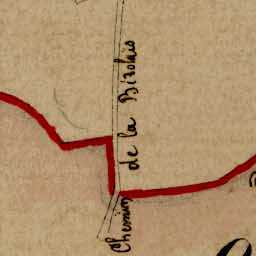 Chemin de la Bizolais